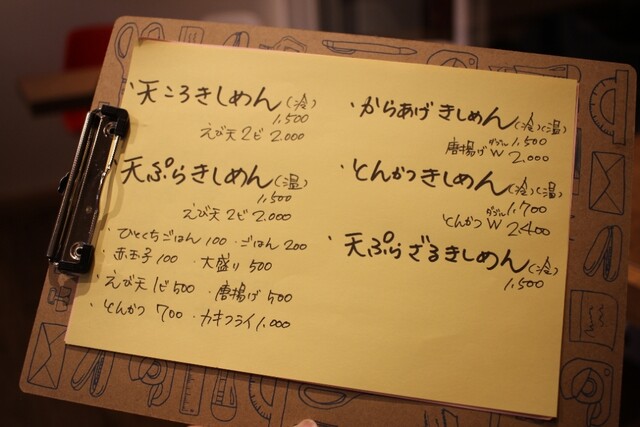 ・天ころきしめん(冷)
1,500
えび天2ビ 2,000
天ぷらきしめん(温)
1,500
えび天2ビ 2,000
・ひとくちごはん 100 ・ごはん 200
・赤玉子 100 ・大盛り 500
・えび天1ビ 500 ・唐揚げ 500
・とんかつ 700 ・カキフライ 1,000
・からあげきしめん(冷)(温)
1,500
唐揚げW ダブル 2,000
・とんかつきしめん(冷)(温)
1,700
とんかつW ダブル 2,400
・天ぷらざるきしめん(冷)
1,500